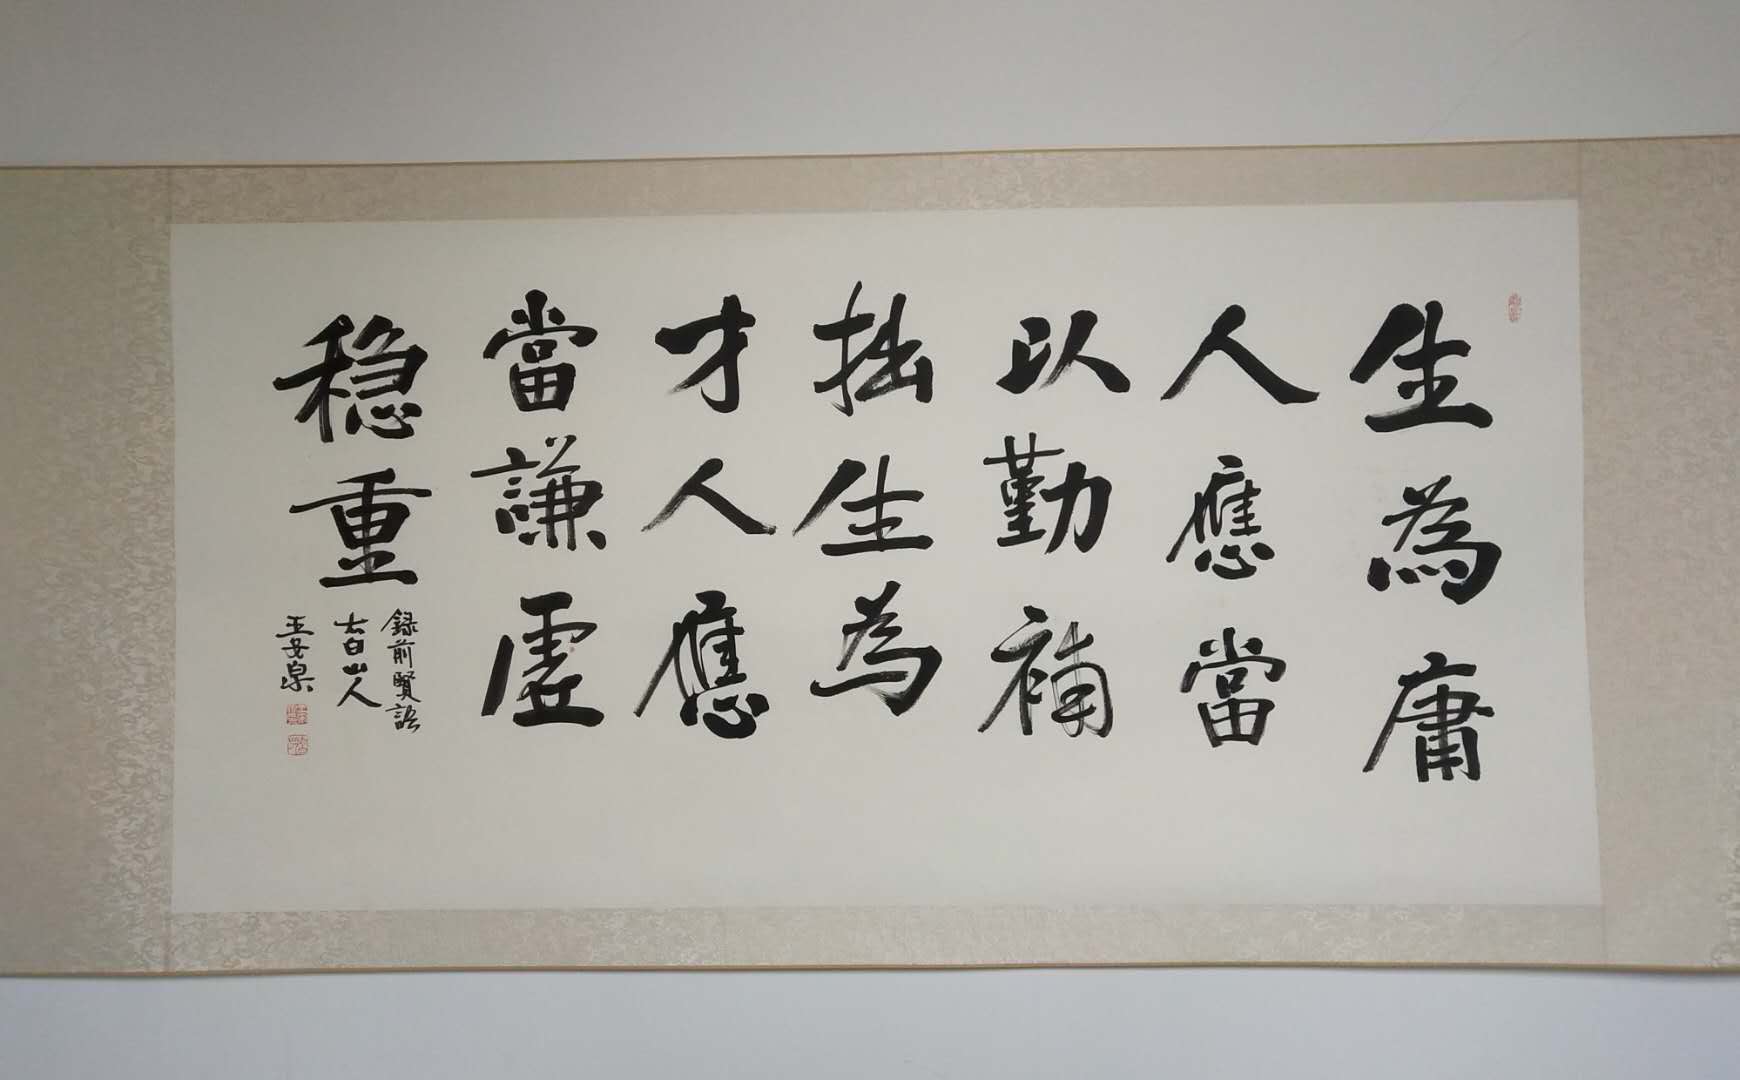 生為庸
人應當
以勤補
拙生為
才人應
當謙虛
穩重
録前賢語
太白山人
王安泉